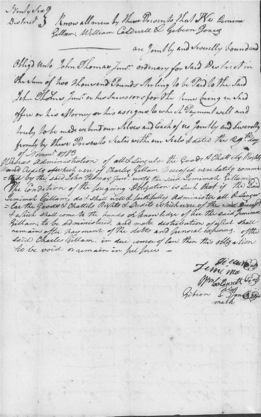 Ninety Six
District } Know all men by these Presents that We Jemima
Gillam, William Caldwell & Gibeon Jones
are Jointly and Severally bound and
Oblig'd unto John Thomas Junr. ordinary for Said District in
the Sum of two thousand Pounds Sterling to be Paid to the Said
John Thomas Junr. or his Successors for the time being or
other or his attorney or his assigns to which Payment well and
truly to be made we bind our Selves and Each of us Jointly and Severally
firmly by these Presents Seal'd with our Seals & dated the day
of
Whereas Administration of all & Singular the Goods & Chattels Rights
and Credits of Charley Gillam Deceased as lately
by the said John Thomas Junr. unto the said Jemimah Gillam
The Condition of the foregoing Obligation is such that if the Said
Jemimah Gillam do & shall well & faithfully administer all & Singu-
lar the Goods & Chattels Rights & Credits
& which shall come to the hands or knowledge of her the said Jemima
Gillam to be administered and make distribution of what shall
remain after payment of the debts and funeral Expences of the
Said Charles Gillam, in due course of law then this obligation
to be void or remain in full force
her
Jemima
mark
Wm Caldwell
his
Gibeon Jones
mark